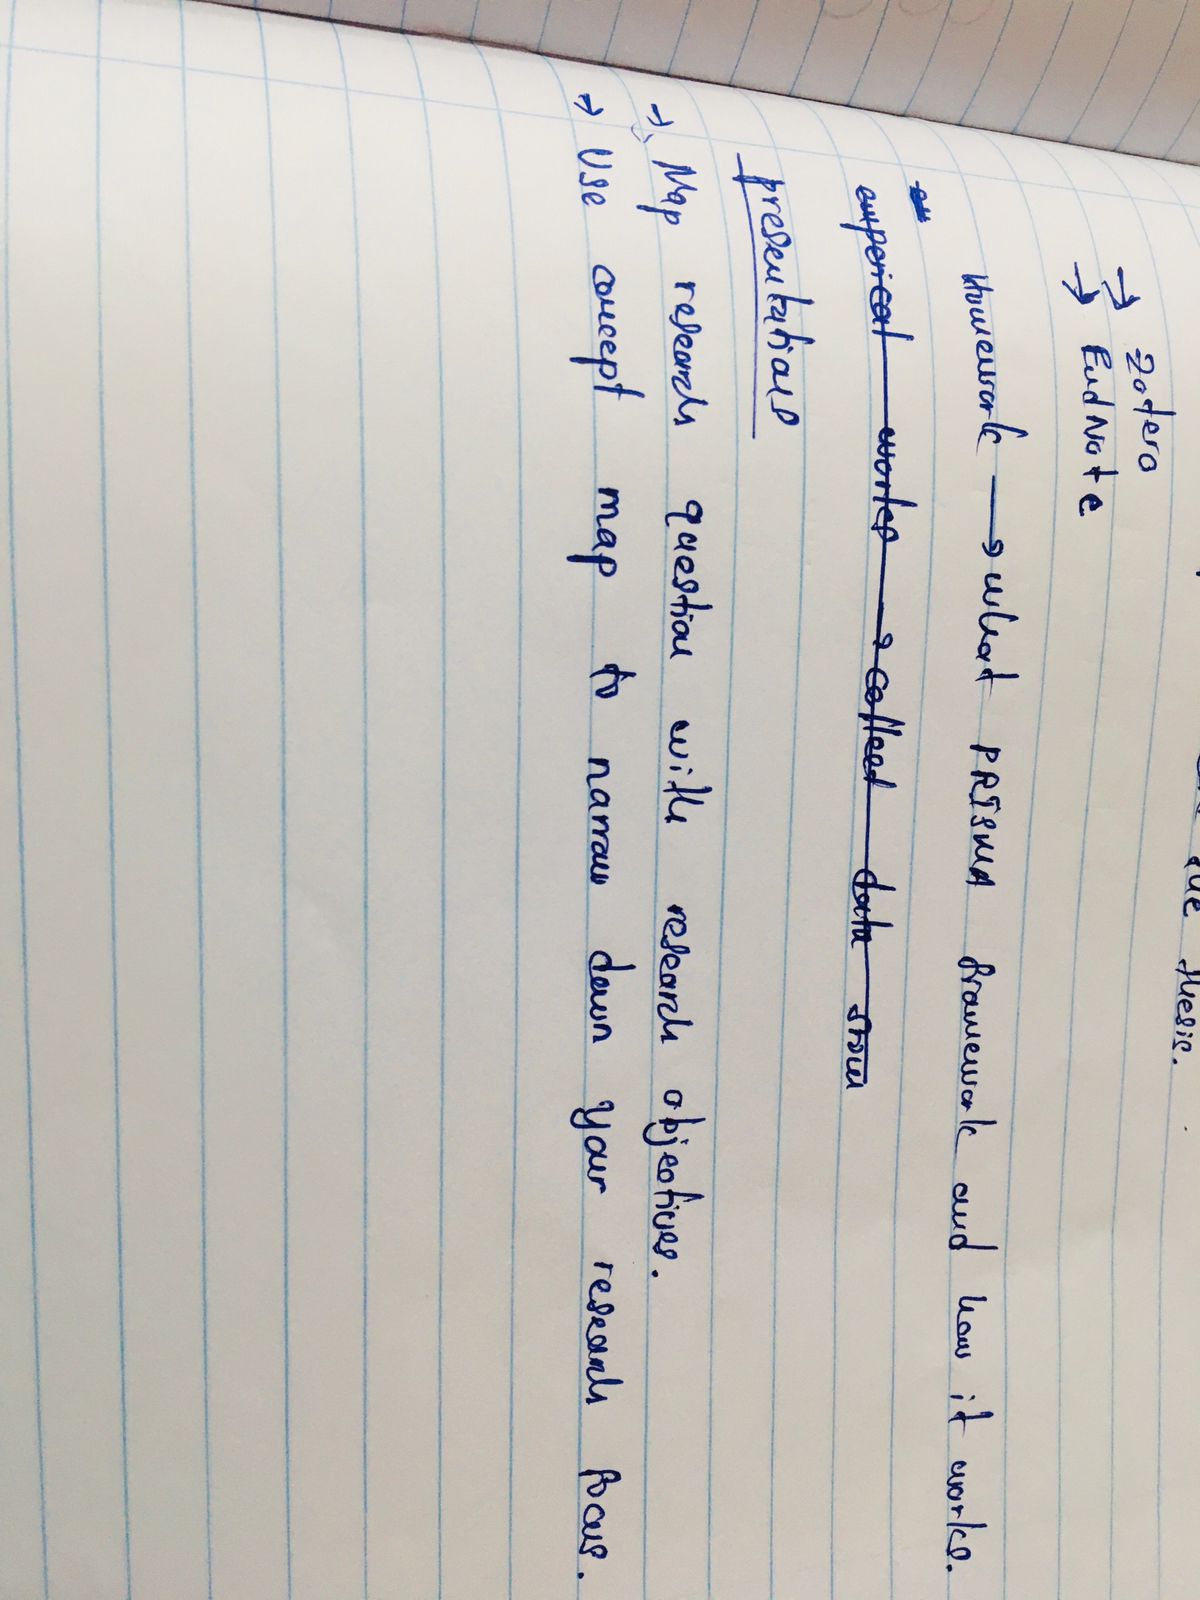 the thesis.
→ Zotero
→ EndNote
Homework → what PRISMA framework and how it works.
em
emperical works → collect data from
presentations
→ Map research question with research objectives.
→ Use concept map to narrow down your research focus.